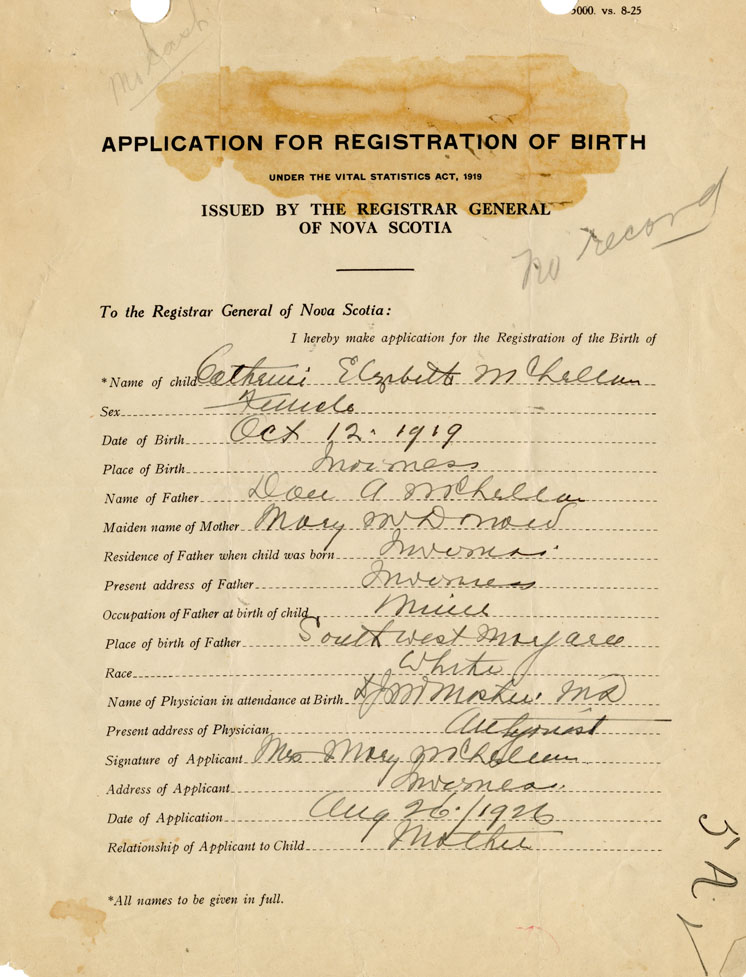 5000. vs. 8-25
APPLICATION FOR REGISTRATION OF BIRTH
UNDER THE VITAL STATISTICS ACT, 1919
ISSUED BY THE REGISTRAR GENERAL
OF NOVA SCOTIA
no record
To the Registrar General of Nova Scotia:
I hereby make application for the Registration of the Birth of
*Name of child Catherine Elizabeth McLellan
Sex Female
Date of Birth Oct 12. 1919
Place of Birth Inverness
Name of Father Dan A McLellan
Maiden name of Mother Mary McDonald
Residence of Father when child was born Inverness
Present address of Father Inverness
Occupation of Father at birth of child Miner
Place of birth of Father South west Margaree
Race White
Name of Physician in attendance at Birth MD
Present address of Physician
Signature of Applicant Mrs Mary McLellan
Address of Applicant Inverness
Date of Application Aug 26/1926
Relationship of Applicant to Child Mother
5 A.
*All names to be given in full.